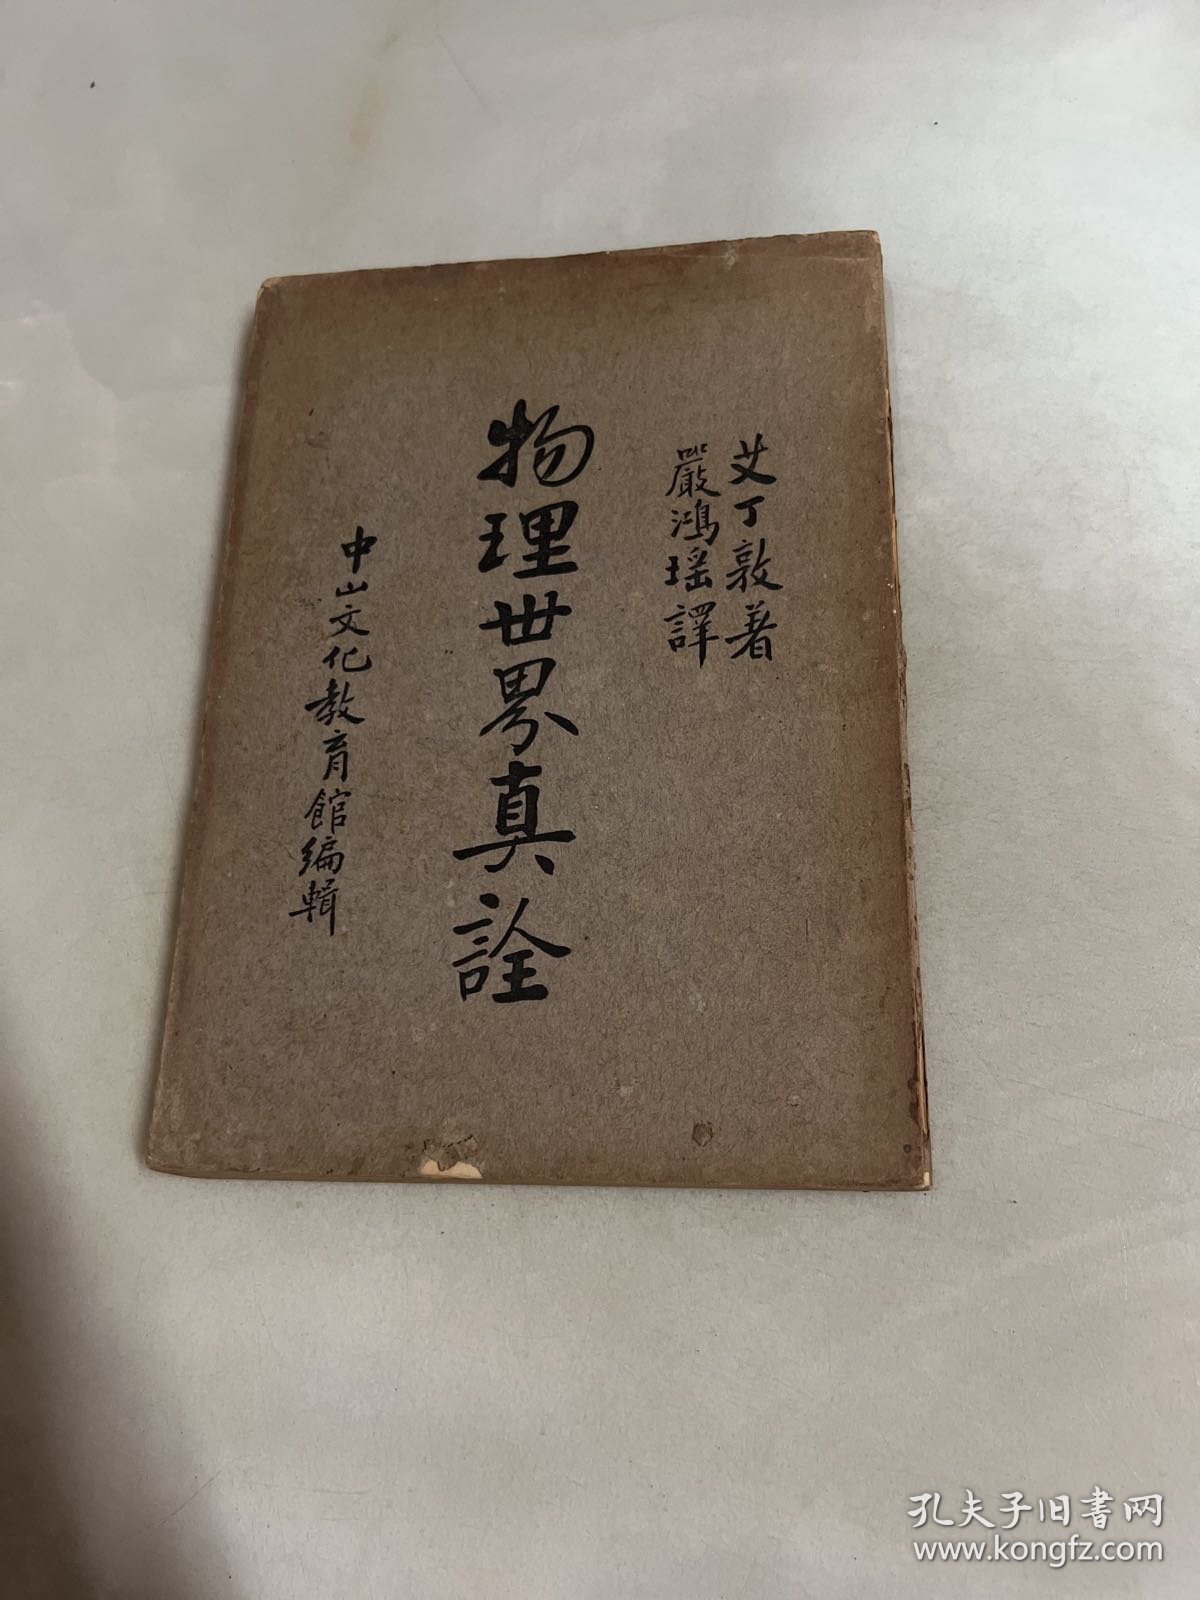 艾丁敦著
嚴鴻瑤譯
物理世界真詮
中山文化教育館編輯
孔夫子旧书网
www.kongfz.com